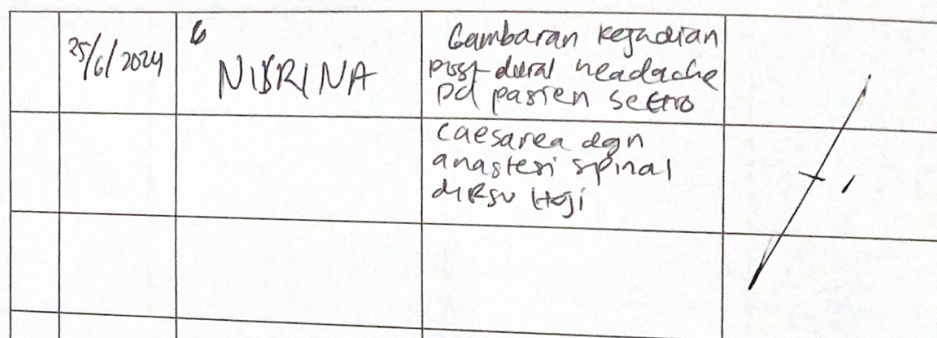 25/6/2024
6
NIBRINA
Gambaran kejadian
post dural headache
pd pasien sectio
caesarea dgn
anastesi spinal
di RSU Haji